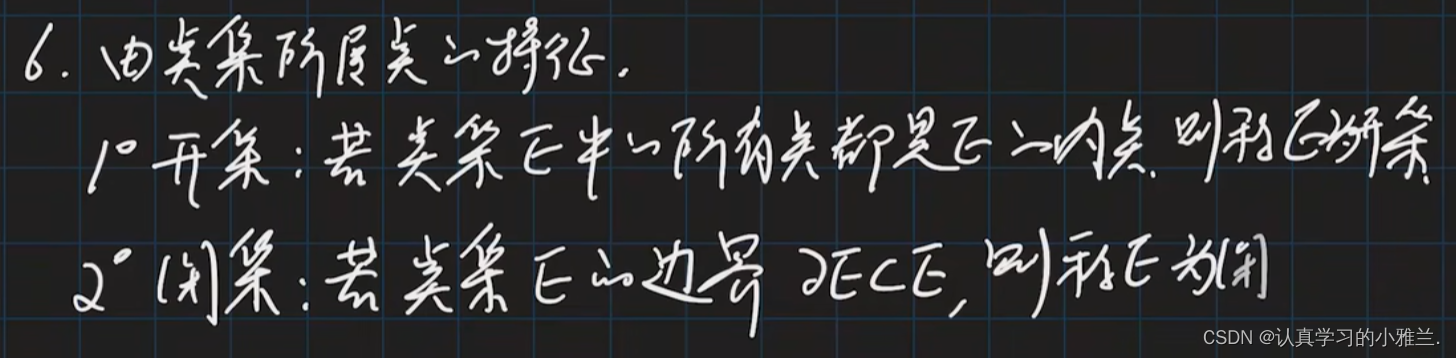 6. 由点集所属点的特征.
1° 开集: 若点集E中的所有点都是E的内点. 则称E为开集.
2° 闭集: 若点集E的边界 ∂E⊂E, 则称E为闭
CSDN @认真学习的小雅兰.